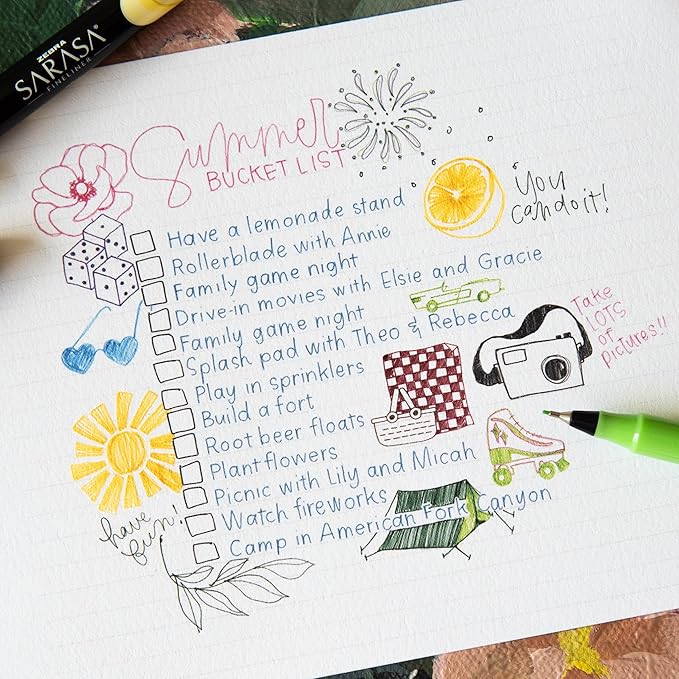 ZEBRA
SARASA
FINELINER
Summer
BUCKET LIST
You
can do it!
Have a lemonade stand
Rollerblade with Annie
Family game night
Drive-in movies with Elsie and Gracie
Family game night
Splash pad with Theo & Rebecca
Take
LOTS
of
Pictures!!
Play in sprinklers
Build a fort
Root beer floats
Plant flowers
Picnic with Lily and Micah
Watch fireworks
Camp in American Fork Canyon
have
fun!